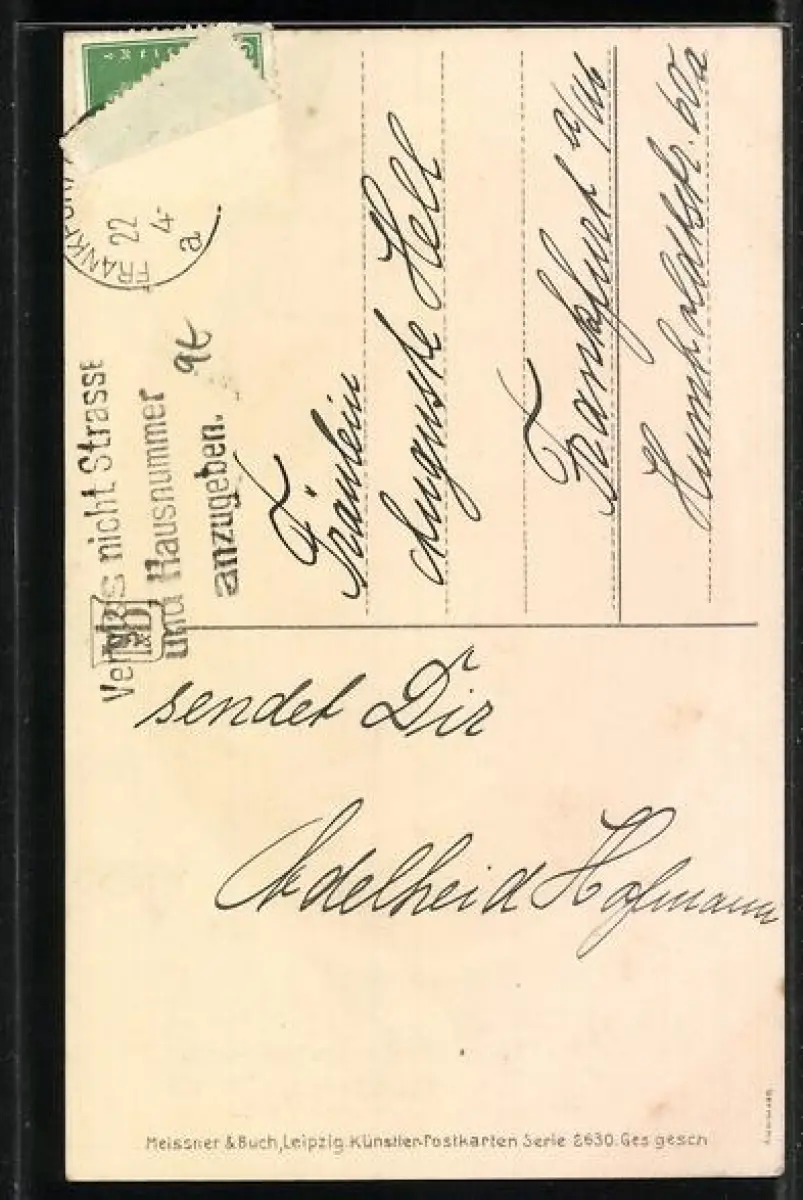 FRANKFURT
22
4-
a
Vergiss nicht Strasse
und Hausnummer
anzugeben.
Fräulein
Auguste Hell
Frankfurt a/M
Humboldtstr. 60a
sendet Dir
Adelheid Hofmann
M&B
Meissner & Buch, Leipzig. Künstler-Postkarten Serie 2630. Ges. gesch